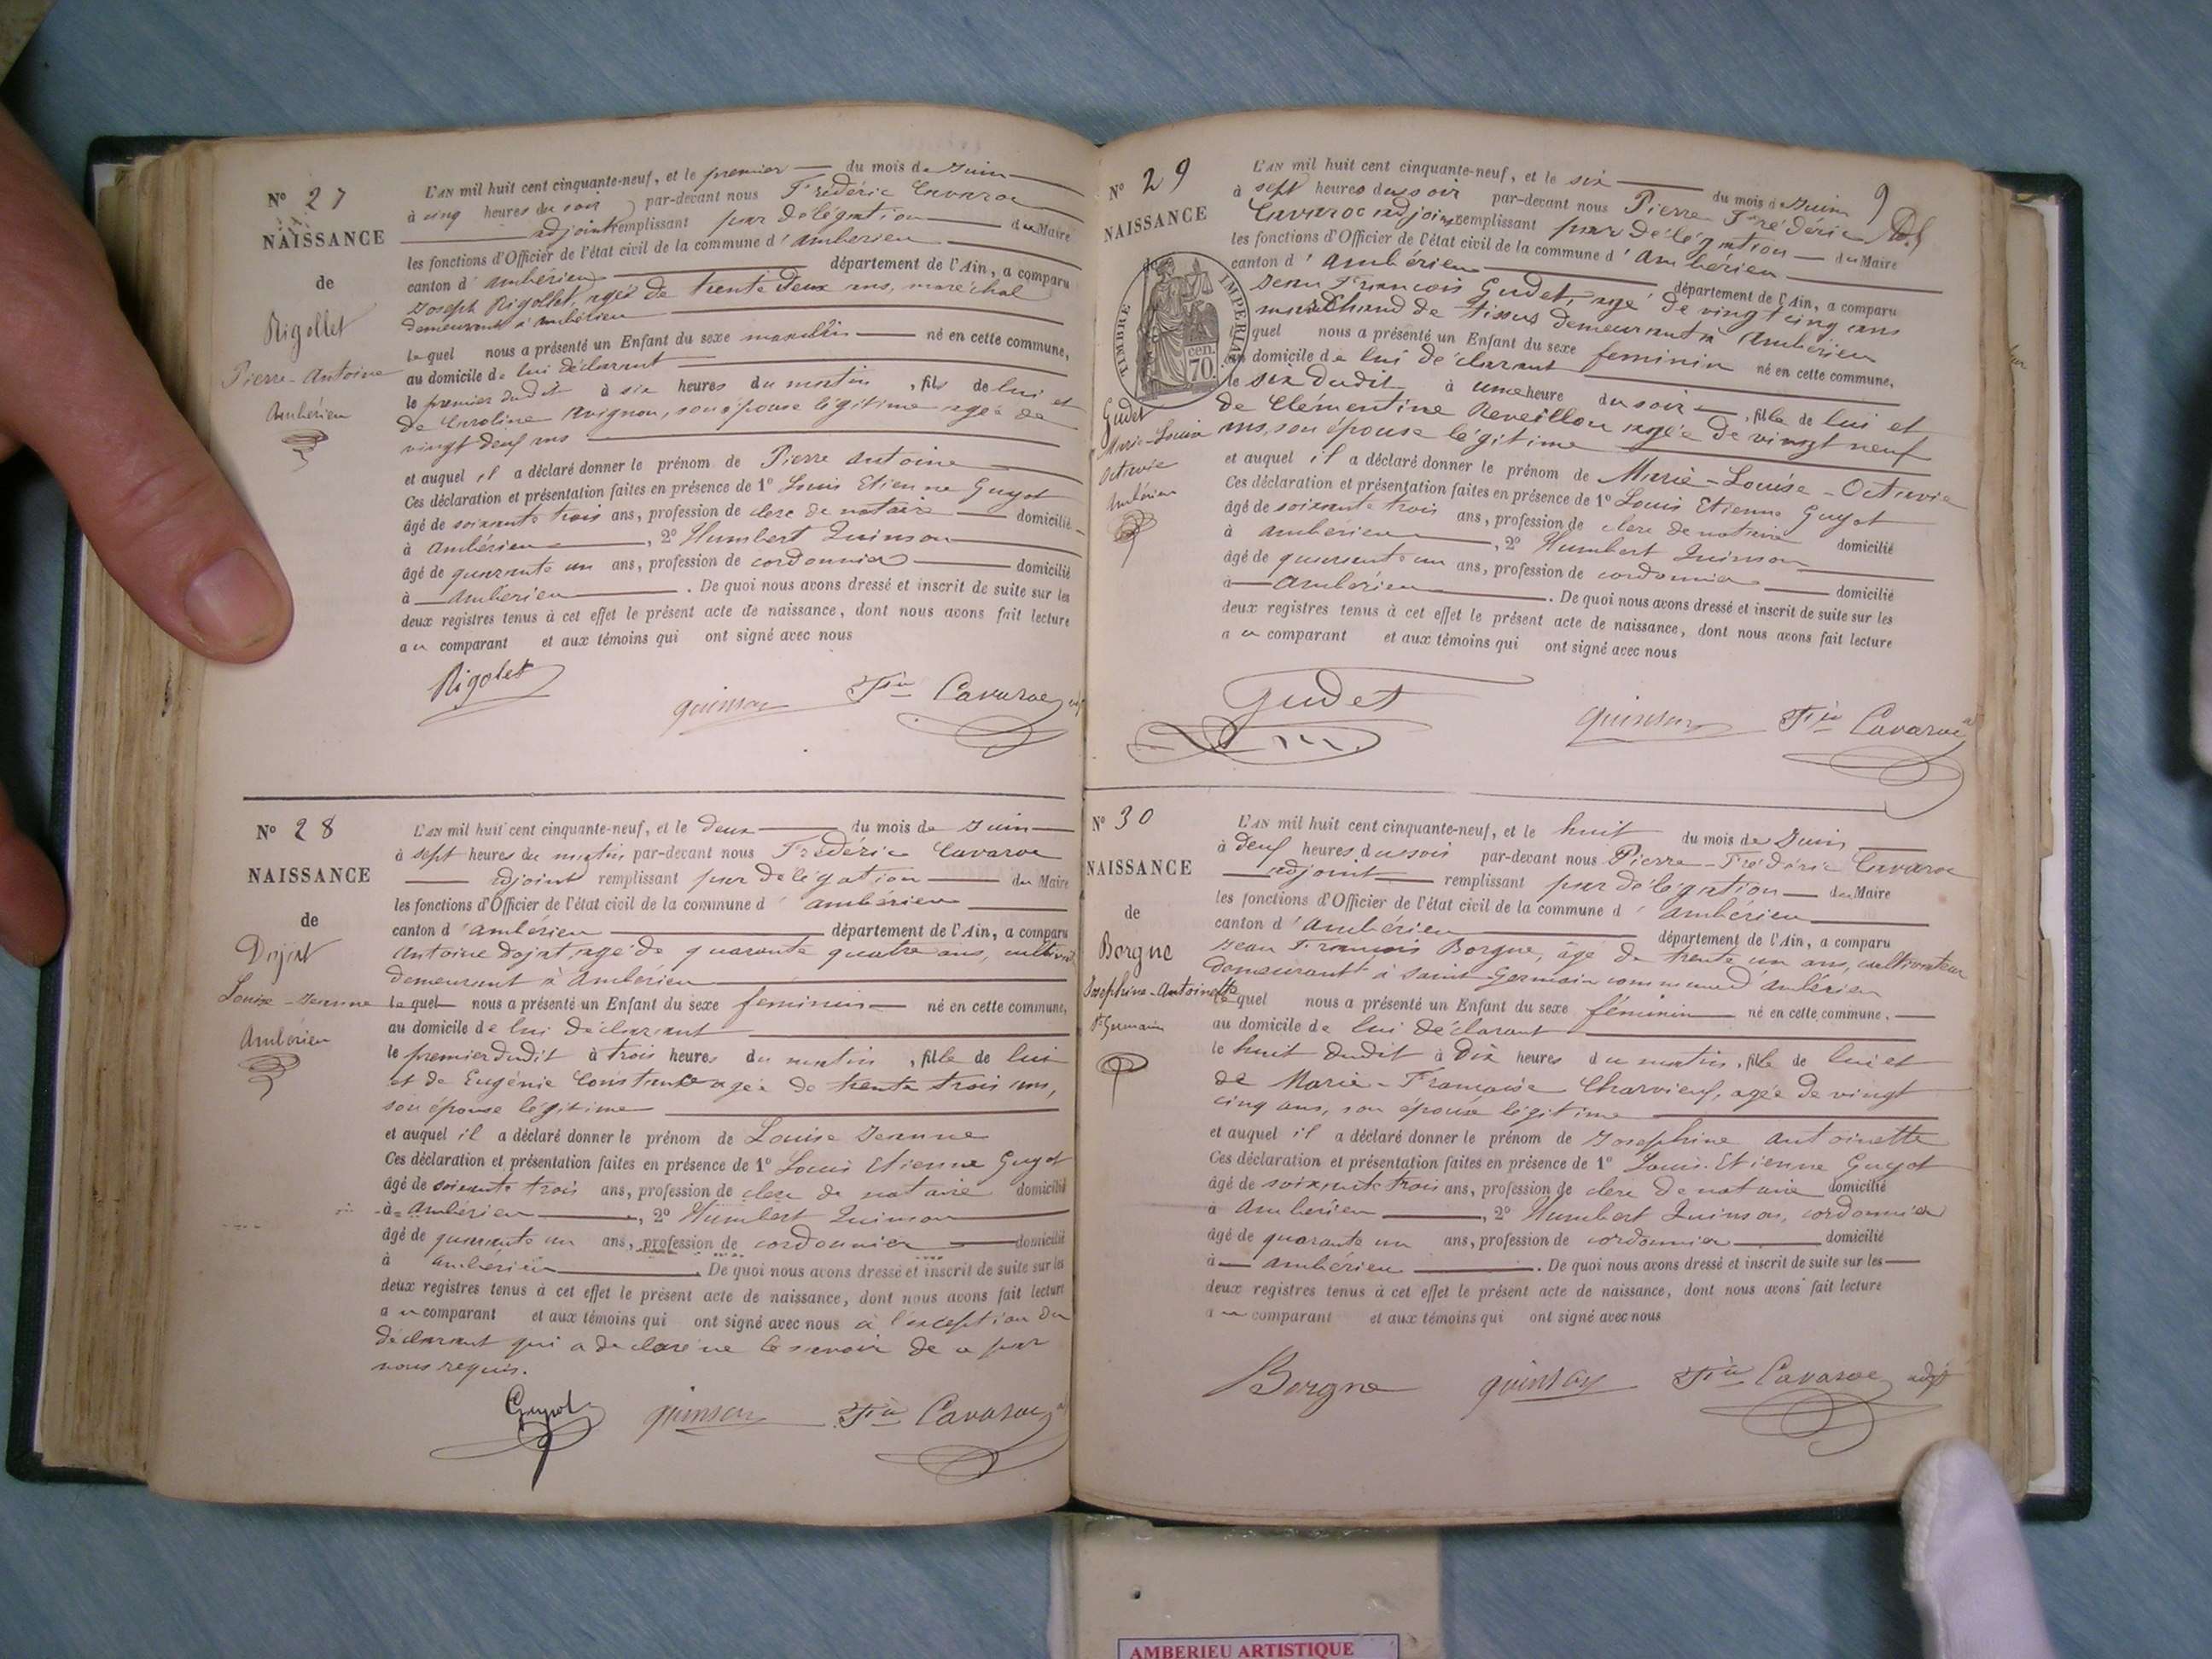 N° 27
NAISSANCE
de
Rigollet
Pierre-Antoine
Ambérieu
L'AN mil huit cent cinquante-neuf, et le premier du mois de Juin
à cinq heures du soir par-devant nous Frédéric Cavaroc
adjoint remplissant par délégation du Maire
les fonctions d'Officier de l'état civil de la commune d'Ambérieu
canton d'ambérieu département de l'Ain, a comparu
Joseph Rigollet, agé de trente deux ans, maréchal
demeurant à Ambérieu
lequel nous a présenté un Enfant du sexe masculin né en cette commune,
au domicile de lui déclarant
le premier dudit à six heures du matin, fils de lui et
de Caroline Avignon, son épouse légitime agée de
vingt neuf ans
et auquel il a déclaré donner le prénom de Pierre Antoine
Ces déclaration et présentation faites en présence de 1° Louis Etienne Guyot
âgé de soixante trois ans, profession de clerc de notaire domicilié
à Ambérieu, 2° Humbert Quinson
âgé de quarante un ans, profession de cordonnier domicilié
à Ambérieu. De quoi nous avons dressé et inscrit de suite sur les
deux registres tenus à cet effet le présent acte de naissance, dont nous avons fait lecture
au comparant et aux témoins qui ont signé avec nous
Rigolet quinson Fic Cavaroc adj
N° 28
NAISSANCE
de
Dojat
Louise-Jeanne
Ambérieu
L'AN mil huit cent cinquante-neuf, et le deux du mois de Juin
à sept heures du matin par-devant nous Frédéric Cavaroc
adjoint remplissant par délégation du Maire
les fonctions d'Officier de l'état civil de la commune d'ambérieu
canton d'ambérieu département de l'Ain, a comparu
Antoine Dojat, agé de quarante quatre ans, cultivat
demeurant à Ambérieu
lequel nous a présenté un Enfant du sexe feminin né en cette commune,
au domicile de lui déclarant
le premier dudit à trois heures du matin, fille de lui
et de Eugénie Constant agée de trente trois ans,
son épouse légitime
et auquel il a déclaré donner le prénom de Louise Jeanne
Ces déclaration et présentation faites en présence de 1° Louis Etienne Guyot
âgé de soixante trois ans, profession de clerc de notaire domicilié
à Ambérieu, 2° Humbert Quinson
âgé de quarante un ans, profession de cordonnier domicilié
à ambérieu. De quoi nous avons dressé et inscrit de suite sur les
deux registres tenus à cet effet le présent acte de naissance, dont nous avons fait lecture
au comparant et aux témoins qui ont signé avec nous à l'exception du
déclarant qui a déclaré ne le savoir de ce par
nous requis.
Guyot quinson Fic Cavaroc
9
N° 29
NAISSANCE
de
TIMBRE IMPERIAL
cen.
70.
Gudet
Marie-Louise
Octavie
Ambérieu
L'AN mil huit cent cinquante-neuf, et le six du mois de Juin
à sept heures du soir par-devant nous Pierre Frédéric
Cavaroc adjoint remplissant par délégation du Maire
les fonctions d'Officier de l'état civil de la commune d'Ambérieu
canton d'Ambérieu département de l'Ain, a comparu
Jean François Gudet, agé de vingt cinq ans
marchand de tissus demeurant à Ambérieu
lequel nous a présenté un Enfant du sexe feminin né en cette commune,
au domicile de lui déclarant
le six dudit à une heure du soir, fille de lui et
de Clémentine Reveillon agée de vingt neuf
ans, son épouse légitime
et auquel il a déclaré donner le prénom de Marie-Louise-Octavie
Ces déclaration et présentation faites en présence de 1° Louis Etienne Guyot
âgé de soixante trois ans, profession de clerc de notaire domicilié
à ambérieu, 2° Humbert Quinson
âgé de quarante un ans, profession de cordonnier domicilié
à Ambérieu. De quoi nous avons dressé et inscrit de suite sur les
deux registres tenus à cet effet le présent acte de naissance, dont nous avons fait lecture
au comparant et aux témoins qui ont signé avec nous
Gudet quinson Fic Cavaroc
N° 30
NAISSANCE
de
Borgne
Josephine-Antoinette
St Germain
L'AN mil huit cent cinquante-neuf, et le huit du mois de Juin
à neuf heures du soir par-devant nous Pierre-Frédéric Cavaroc
adjoint remplissant par délégation du Maire
les fonctions d'Officier de l'état civil de la commune d'ambérieu
canton d'Ambérieu département de l'Ain, a comparu
Jean François Borgne, âgé de trente un ans, cultivateur
demeurant à Saint-Germain commune d'ambérieu
lequel nous a présenté un Enfant du sexe féminin né en cette commune,
au domicile de lui déclarant
le huit dudit à dix heures du matin, fille de lui et
de Marie-Françoise Charvieuf, agée de vingt
cinq ans, son épouse légitime
et auquel il a déclaré donner le prénom de Josephine Antoinette
Ces déclaration et présentation faites en présence de 1° Louis-Etienne Guyot
âgé de soixante trois ans, profession de clerc de notaire domicilié
à Ambérieu, 2° Humbert Quinson, cordonnier
âgé de quarante un ans, profession de cordonnier domicilié
à ambérieu. De quoi nous avons dressé et inscrit de suite sur les
deux registres tenus à cet effet le présent acte de naissance, dont nous avons fait lecture
au comparant et aux témoins qui ont signé avec nous
Borgne quinson Fic Cavaroc adjt
AMBERIEU ARTISTIQUE